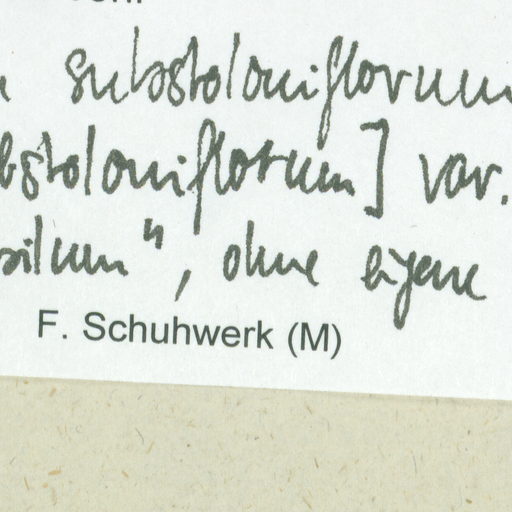 substoloniflorum
bstoloniflorum] var.
silum", ohne eigene
F. Schuhwerk (M)